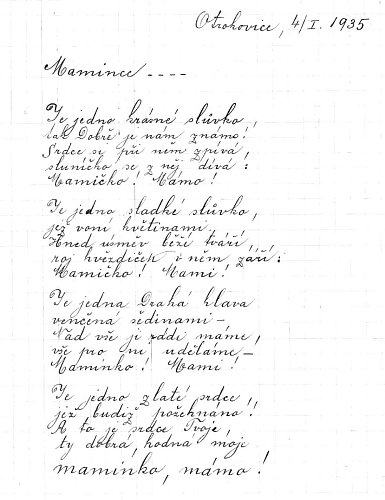 Otrokovice, 4/I. 1935
Mamince ----
Je jedno krásné slůvko,
tak Dobře je nám známo!
Srdce si při něm zpívá,
sluníčko se z něj dívá:
Mamičko! Mámo!
Je jedno sladké slůvko,
jež voní květinami.
Hned úsměv běží tváří
roj hvězdiček v něm září:
Mamičko! Mami!
Je jedna Drahá hlava
venčená šedinami –
Nad vše ji máme,
vše pro ni uděláme –
Maminko! Mami!
Je jedno zlaté srdce,
jež budiž požehnáno!
A to je srdce Tvoje,
ty dobrá, hodná moje
maminko, mámo!